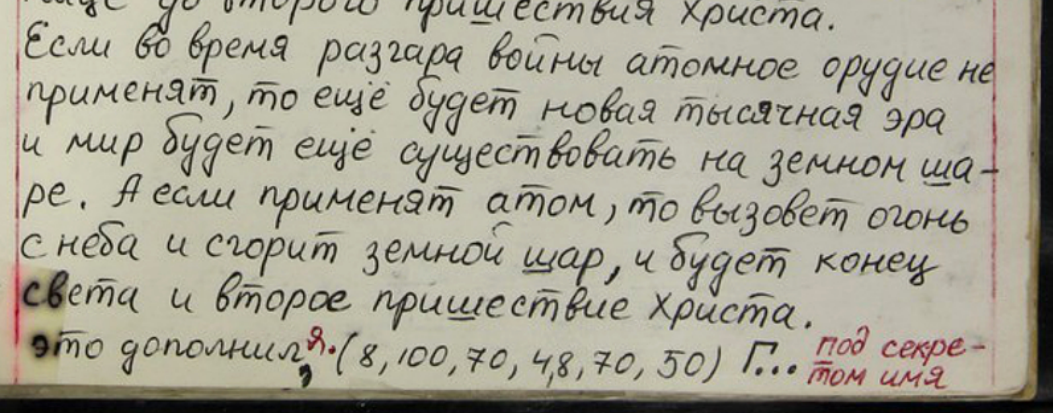 до второго пришествия Христа.
Если во время разгара войны атомное орудие не
применят, то ещё будет новая тысячная эра
и мир будет ещё существовать на земном ша-
ре. А если применят атом, то вызовет огонь
с неба и сгорит земной шар, и будет конец
света и второе пришествие Христа.
это дополнил, я. (8, 100, 70, 4,8, 70, 50) Г... под секре-
том имя